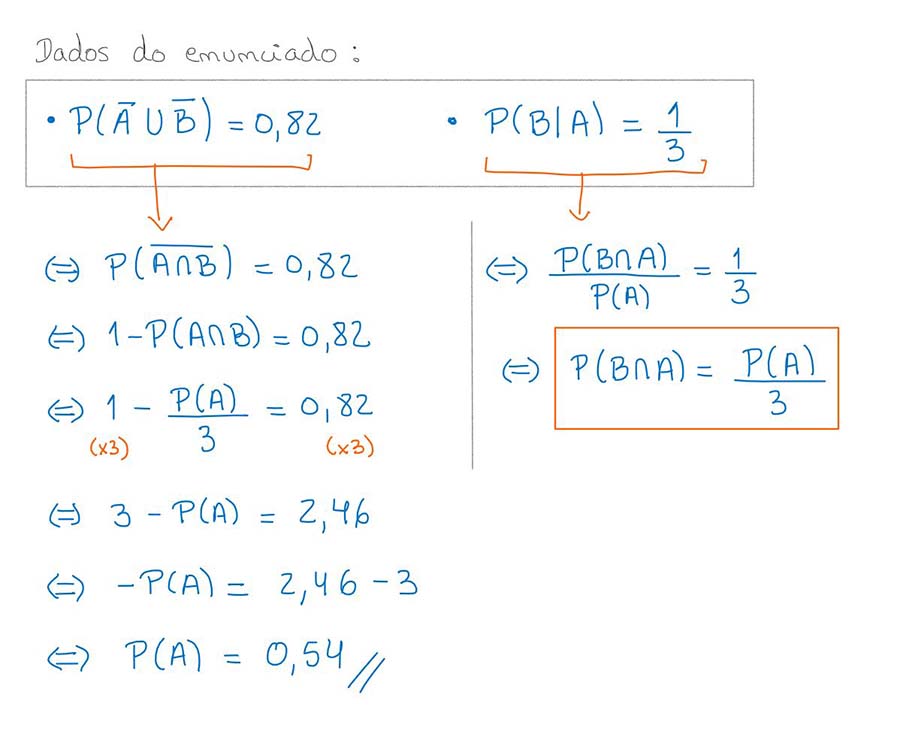 Dados do enunciado:
• P(A̅ ∪ B̅) = 0,82
• P(B|A) = 1/3
⇔ P(A̅∩̅B̅) = 0,82
⇔ 1 - P(A∩B) = 0,82
⇔ 1 - P(A)/3 = 0,82
(×3) (×3)
⇔ 3 - P(A) = 2,46
⇔ -P(A) = 2,46 - 3
⇔ P(A) = 0,54 //
⇔ P(B∩A)/P(A) = 1/3
⇔ P(B∩A) = P(A)/3